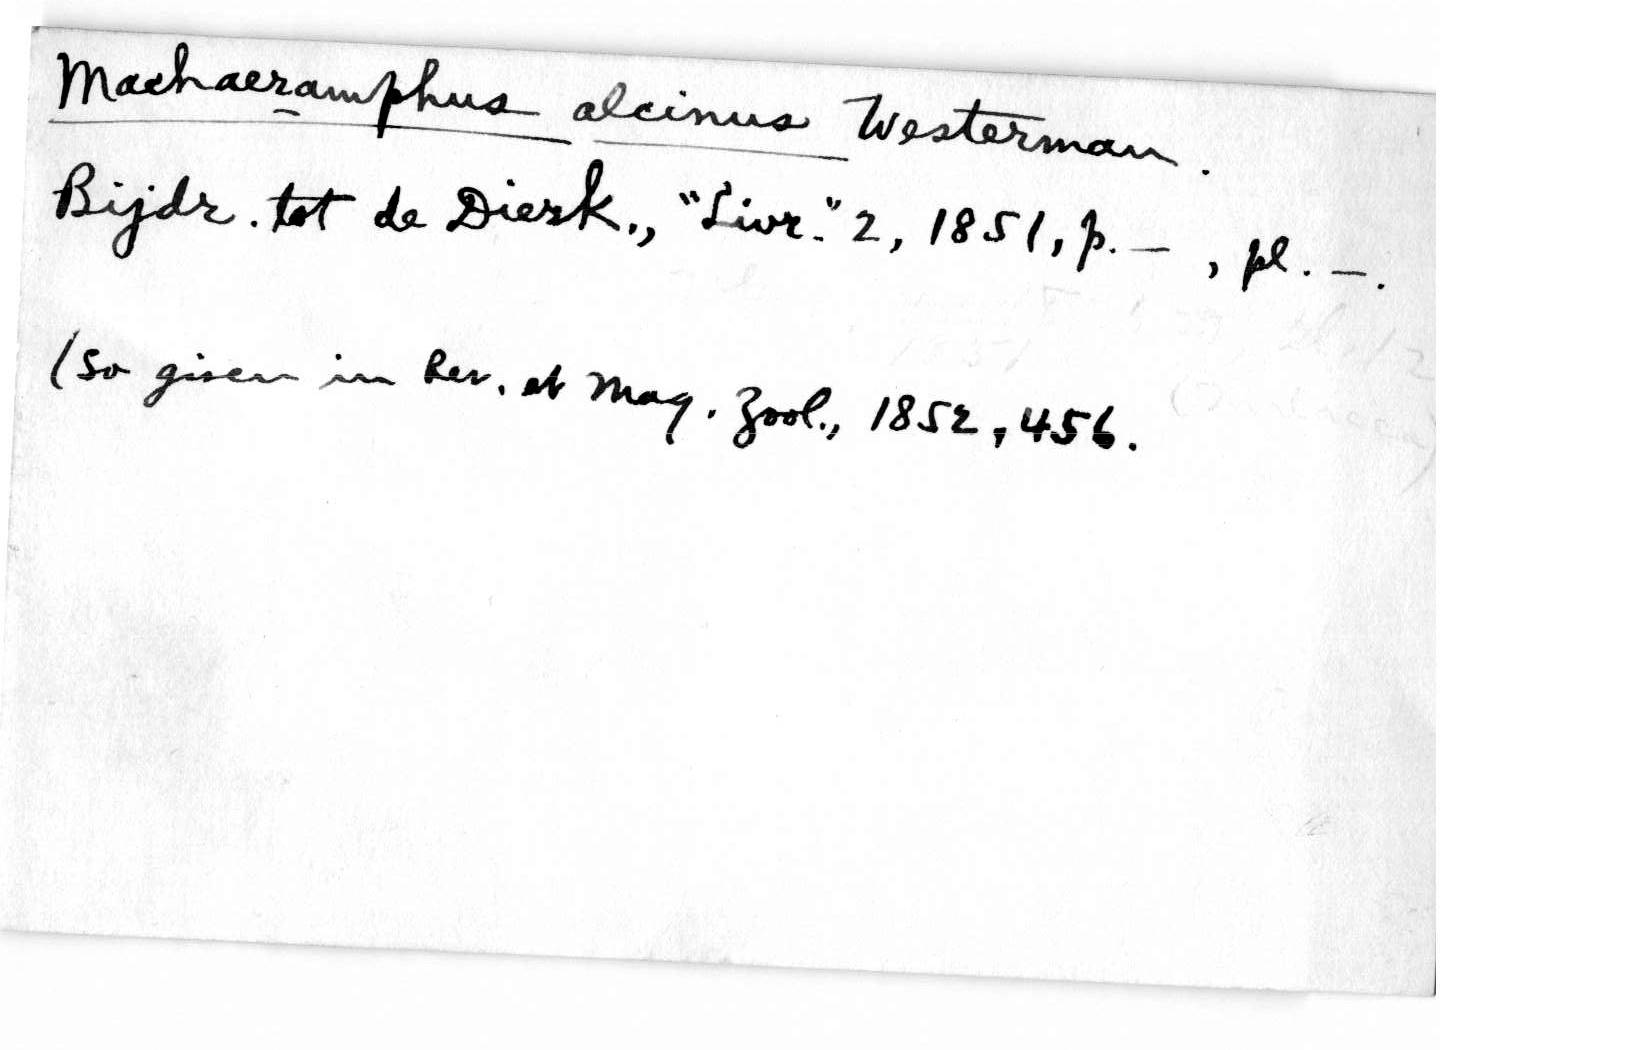 Machaeramphus alcinus Westerman.
Bijdr. tot de Dierk., "Livr." 2, 1851, p. — , pl. —.
(So given in Rev. et Mag. Zool., 1852, 456.